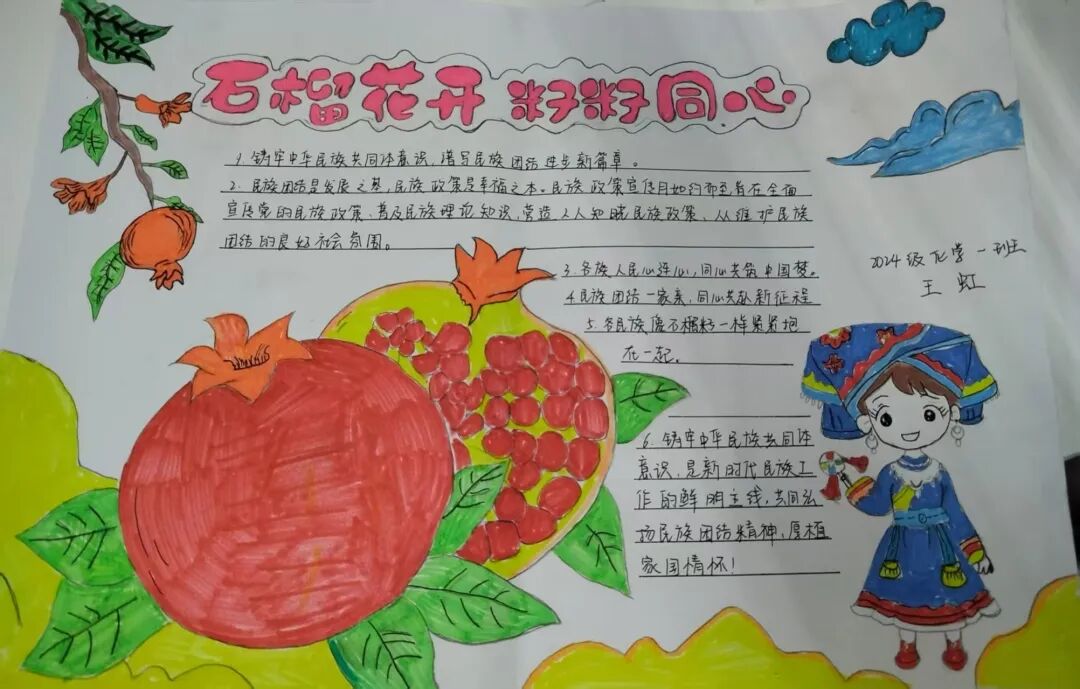 石榴花开 籽籽同心
1. 铸牢中华民族共同体意识，谱写民族团结进步新篇章。
2. 民族团结是发展之基，民族政策是幸福之本。民族政策宣传月如约而至旨在全面
宣传党的民族政策、普及民族理论知识，营造人人知晓民族政策、从维护民族
团结的良好社会氛围。
3. 各族人民心连心，同心共筑中国梦。
4. 民族团结一家亲，同心共赴新征程
5. 各民族像石榴籽一样紧紧抱
在一起。
2024级化学一班
王虹
6. 铸牢中华民族共同体
意识，是新时代民族工
作的鲜明主线，共同弘
扬民族团结精神，厚植
家国情怀！